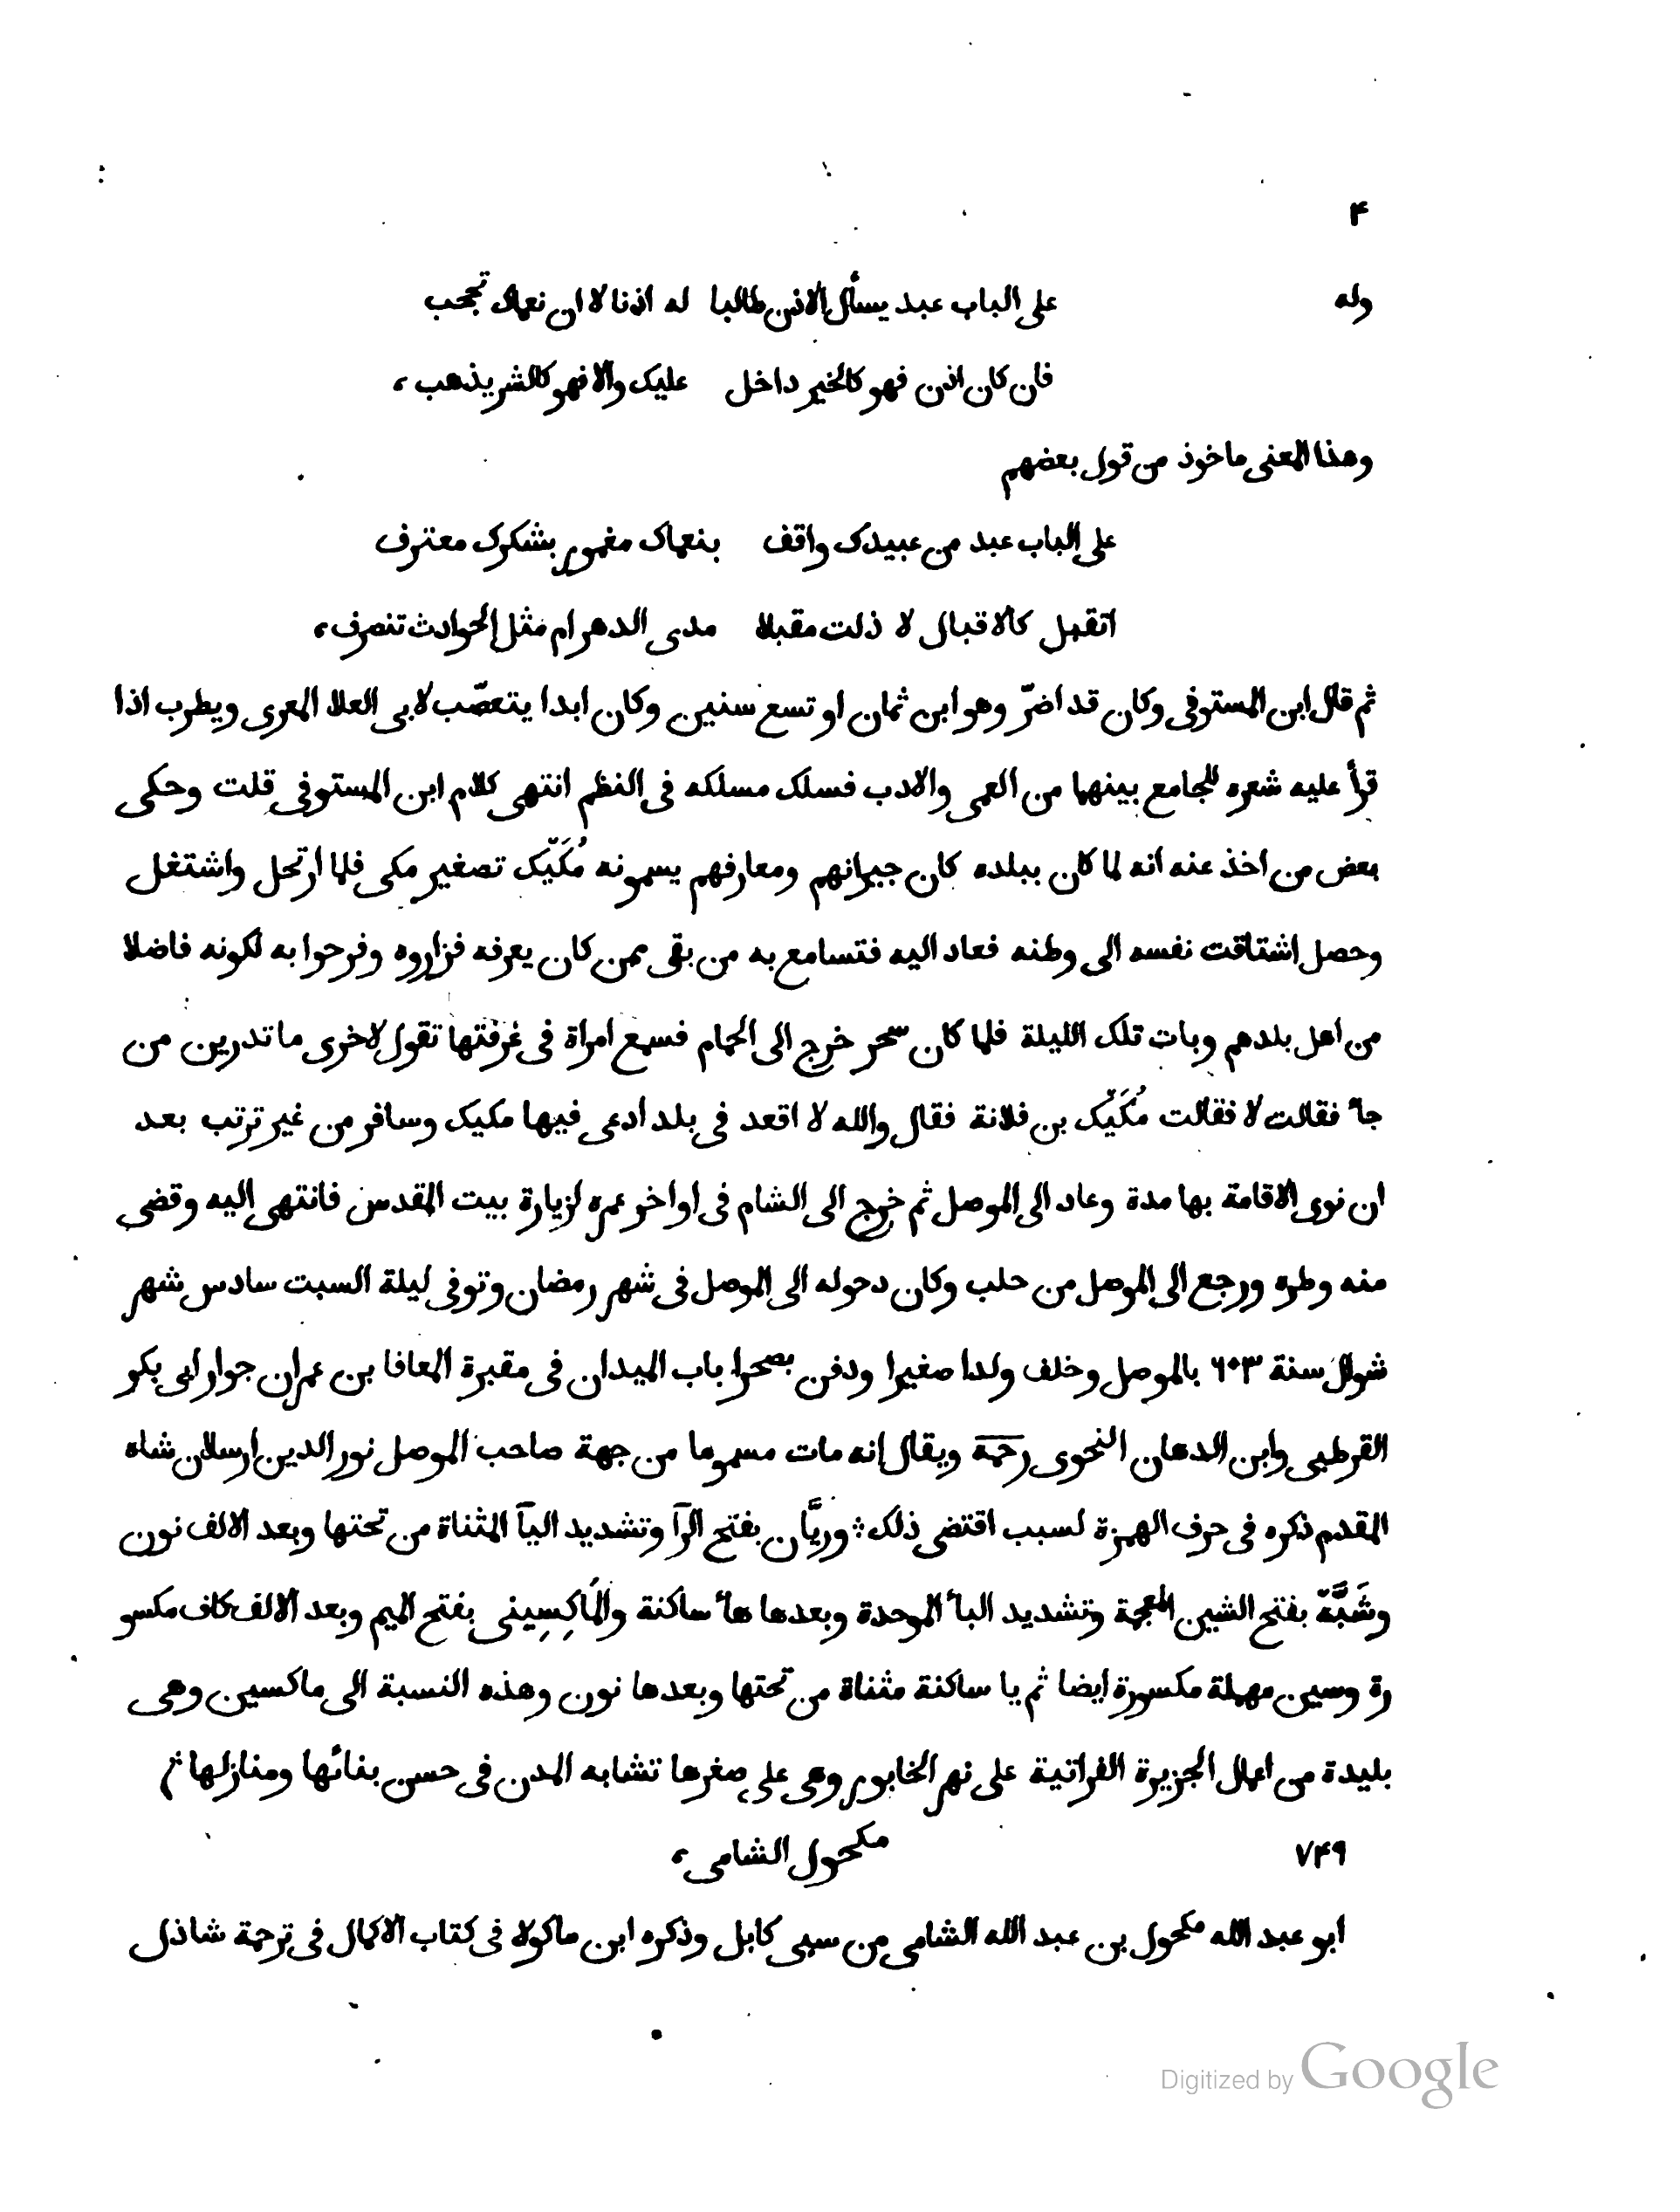 ۴
وله على الباب عبد يسأل الاذن طالبا له اذنا لا ان نعماك تحجب
فان كان اذن فهو كالخير داخل عليك والا فهو كالشر يذهب،
وهذا المعنى ماخوذ من قول بعضهم
على الباب عبد من عبيدك واقف بنعماك مغمور بشكرك معترف
اتقبل كالاقبال لا ذلت مقبلا مدى الدهر ام مثل الحوادث تنصرف،
ثم قال ابن المستوفى وكان قد اضرّ وهو ابن ثمان او تسع سنين وكان ابدا يتعصّب لابى العلا المعرى ويطرب اذا
قرأ عليه شعره للجامع بينهما من العمى والادب فسلك مسلكه فى النظم انتهى كلام ابن المستوفى قلت وحكى
بعض من اخذ عنه انه لما كان ببلده كان جيرانهم ومعارفهم يسمونه مُكَيّك تصغير مكى فلما ارتحل واشتغل
وحصل اشتاقت نفسه الى وطنه فعاد اليه فتسامع به من بقى ممن كان يعرفه فزاروه وفرحوا به لكونه فاضلا
من اهل بلدهم وبات تلك الليلة فلما كان سحر خرج الى الحمام فسمع امراة فى غرفتها تقول لاخرى ما تدرين من
جأ فقالت لا فقالت مُكَيّك بن فلانة فقال والله لا اقعد فى بلد ادعى فيها مكيك وسافر من غير ترتب بعد
ان نوى الاقامة بها مدة وعاد الى الموصل ثم خرج الى الشام فى اواخر عمره لزيارة بيت المقدس فانتهى اليه وقضى
منه وطره ورجع الى الموصل من حلب وكان دحوله الى الموصل فى شهر رمضان وتوفى ليلة السبت سادس شهر
شوال سنة ٦٠٣ بالموصل وخلف ولدا صغيرا ودفن بصحرا باب الميدان فى مقبرة المعافا بن عمران جوار ابى بكر
القرطبى وابن الدهان النحوى رحمة ويقال انه مات مسموما من جهة صاحب الموصل نور الدين ارسلان شاه
المقدم ذكره فى حرف الهمزة لسبب اقتضى ذلك ؞ وريَّان بفتح الرآ وتشديد اليآ المثناة من تحتها وبعد الالف نون
وشَبَّة بفتح الشين المعجمة وتشديد البأ الموحدة وبعدها هأ ساكنة والمَاكِسِينى بفتح الميم وبعد الالف كاف مكسو
رة وسين مهملة مكسورة ايضا ثم يا ساكنة مثناة من تحتها وبعدها نون وهذه النسبة الى ماكسين وهى
بليدة من اعمال الجزيرة الفراتية على نهر الخابور وهى على صغرها تشابه المدن فى حسن بنائها ومنازلها ؞
٧۴٩ مكحول الشامى،
ابو عبد الله مكحول بن عبد الله الشامى من سبى كابل وذكره ابن ماكولا فى كتاب الاكمال فى ترجمة شاذل
Digitized by Google